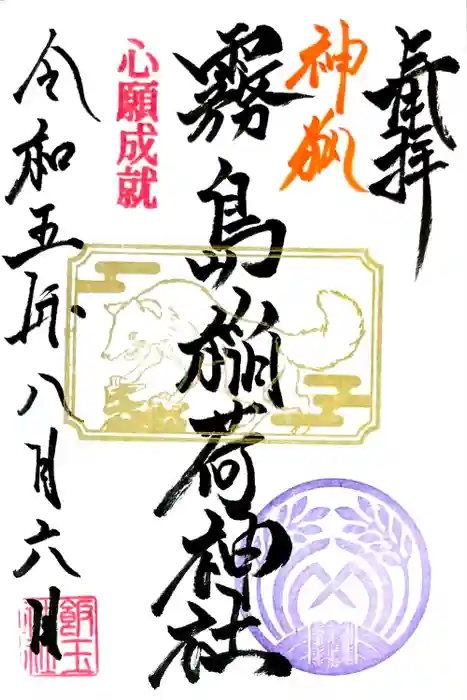 奉拝
神狐
霧島稲荷神社
心願成就
令和五年八月六日
飯玉